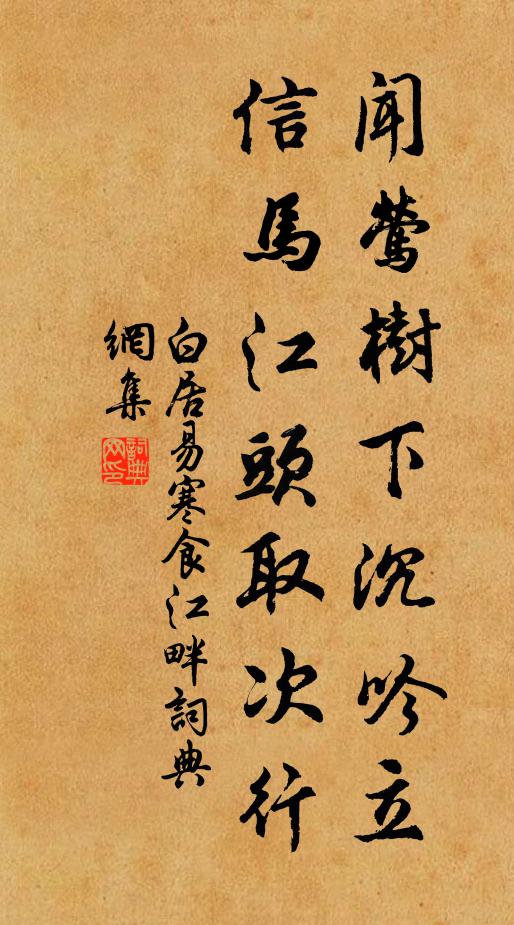 闻鶯樹下沉吟立
信馬江頭取次行
白居易寒食江畔詞典
網集
詞典网印